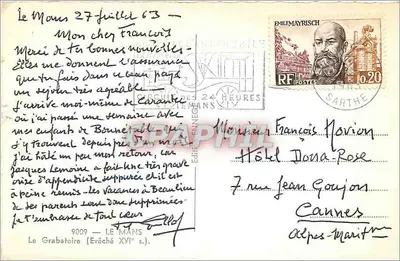 Le Mans 27 juillet 63 -
Mon cher François
Merci de tes bonnes nouvelles -
Elles me donnent l'assurance
que tu fais dans ce beau pays
un séjour très agréable
J'arrive moi-même de Carantec
où j'ai passé une semaine avec
mes enfants de Bonnetable
s'y trouvent depuis
j'ai hâté un peu mon retour, car
Jacques Lemoine a fait une très grave
crise d'appendicite suppurée et il est
à peine remis - les vacances à Beaulieu
de ses parents sont donc supprimées -
Je t'embrasse de tout cœur
9009 - LE MANS
Le Grabatoire (Evêché XVIe s.)
EMILE MAYRISCH
RF
POSTES
0,20
24 HEURES
DU MANS
SARTHE
Monsieur François Morion
Hôtel Dona-Rose
7 rue Jean Goujon
Cannes
Alpes-Maritmes